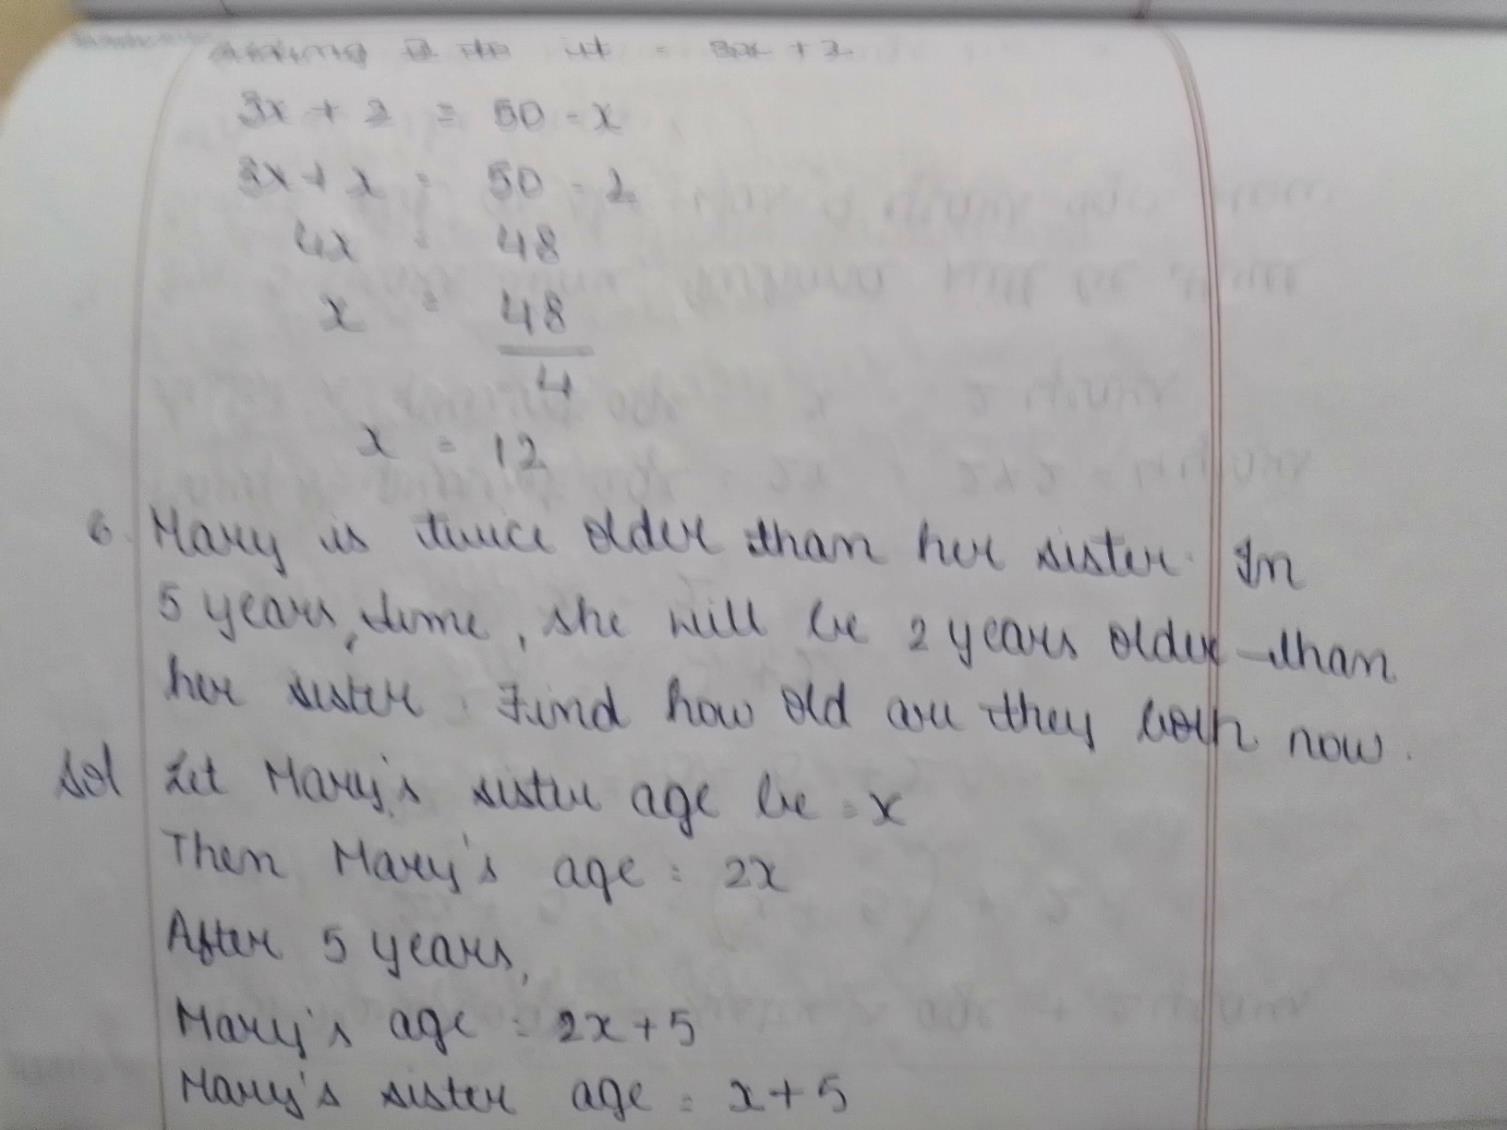 Adding 2 to it = 3x + 2
3x + 2 = 50 - x
3x + x = 50 - 2
4x = 48
x = 48
4
x = 12
6. Mary is twice older than her sister. In
5 years, time, she will be 2 years older than
her sister. Find how old are they both now.
Sol Let Mary's sister age be = x
Then Mary's age = 2x
After 5 years,
Mary's age = 2x + 5
Mary's sister age = x + 5